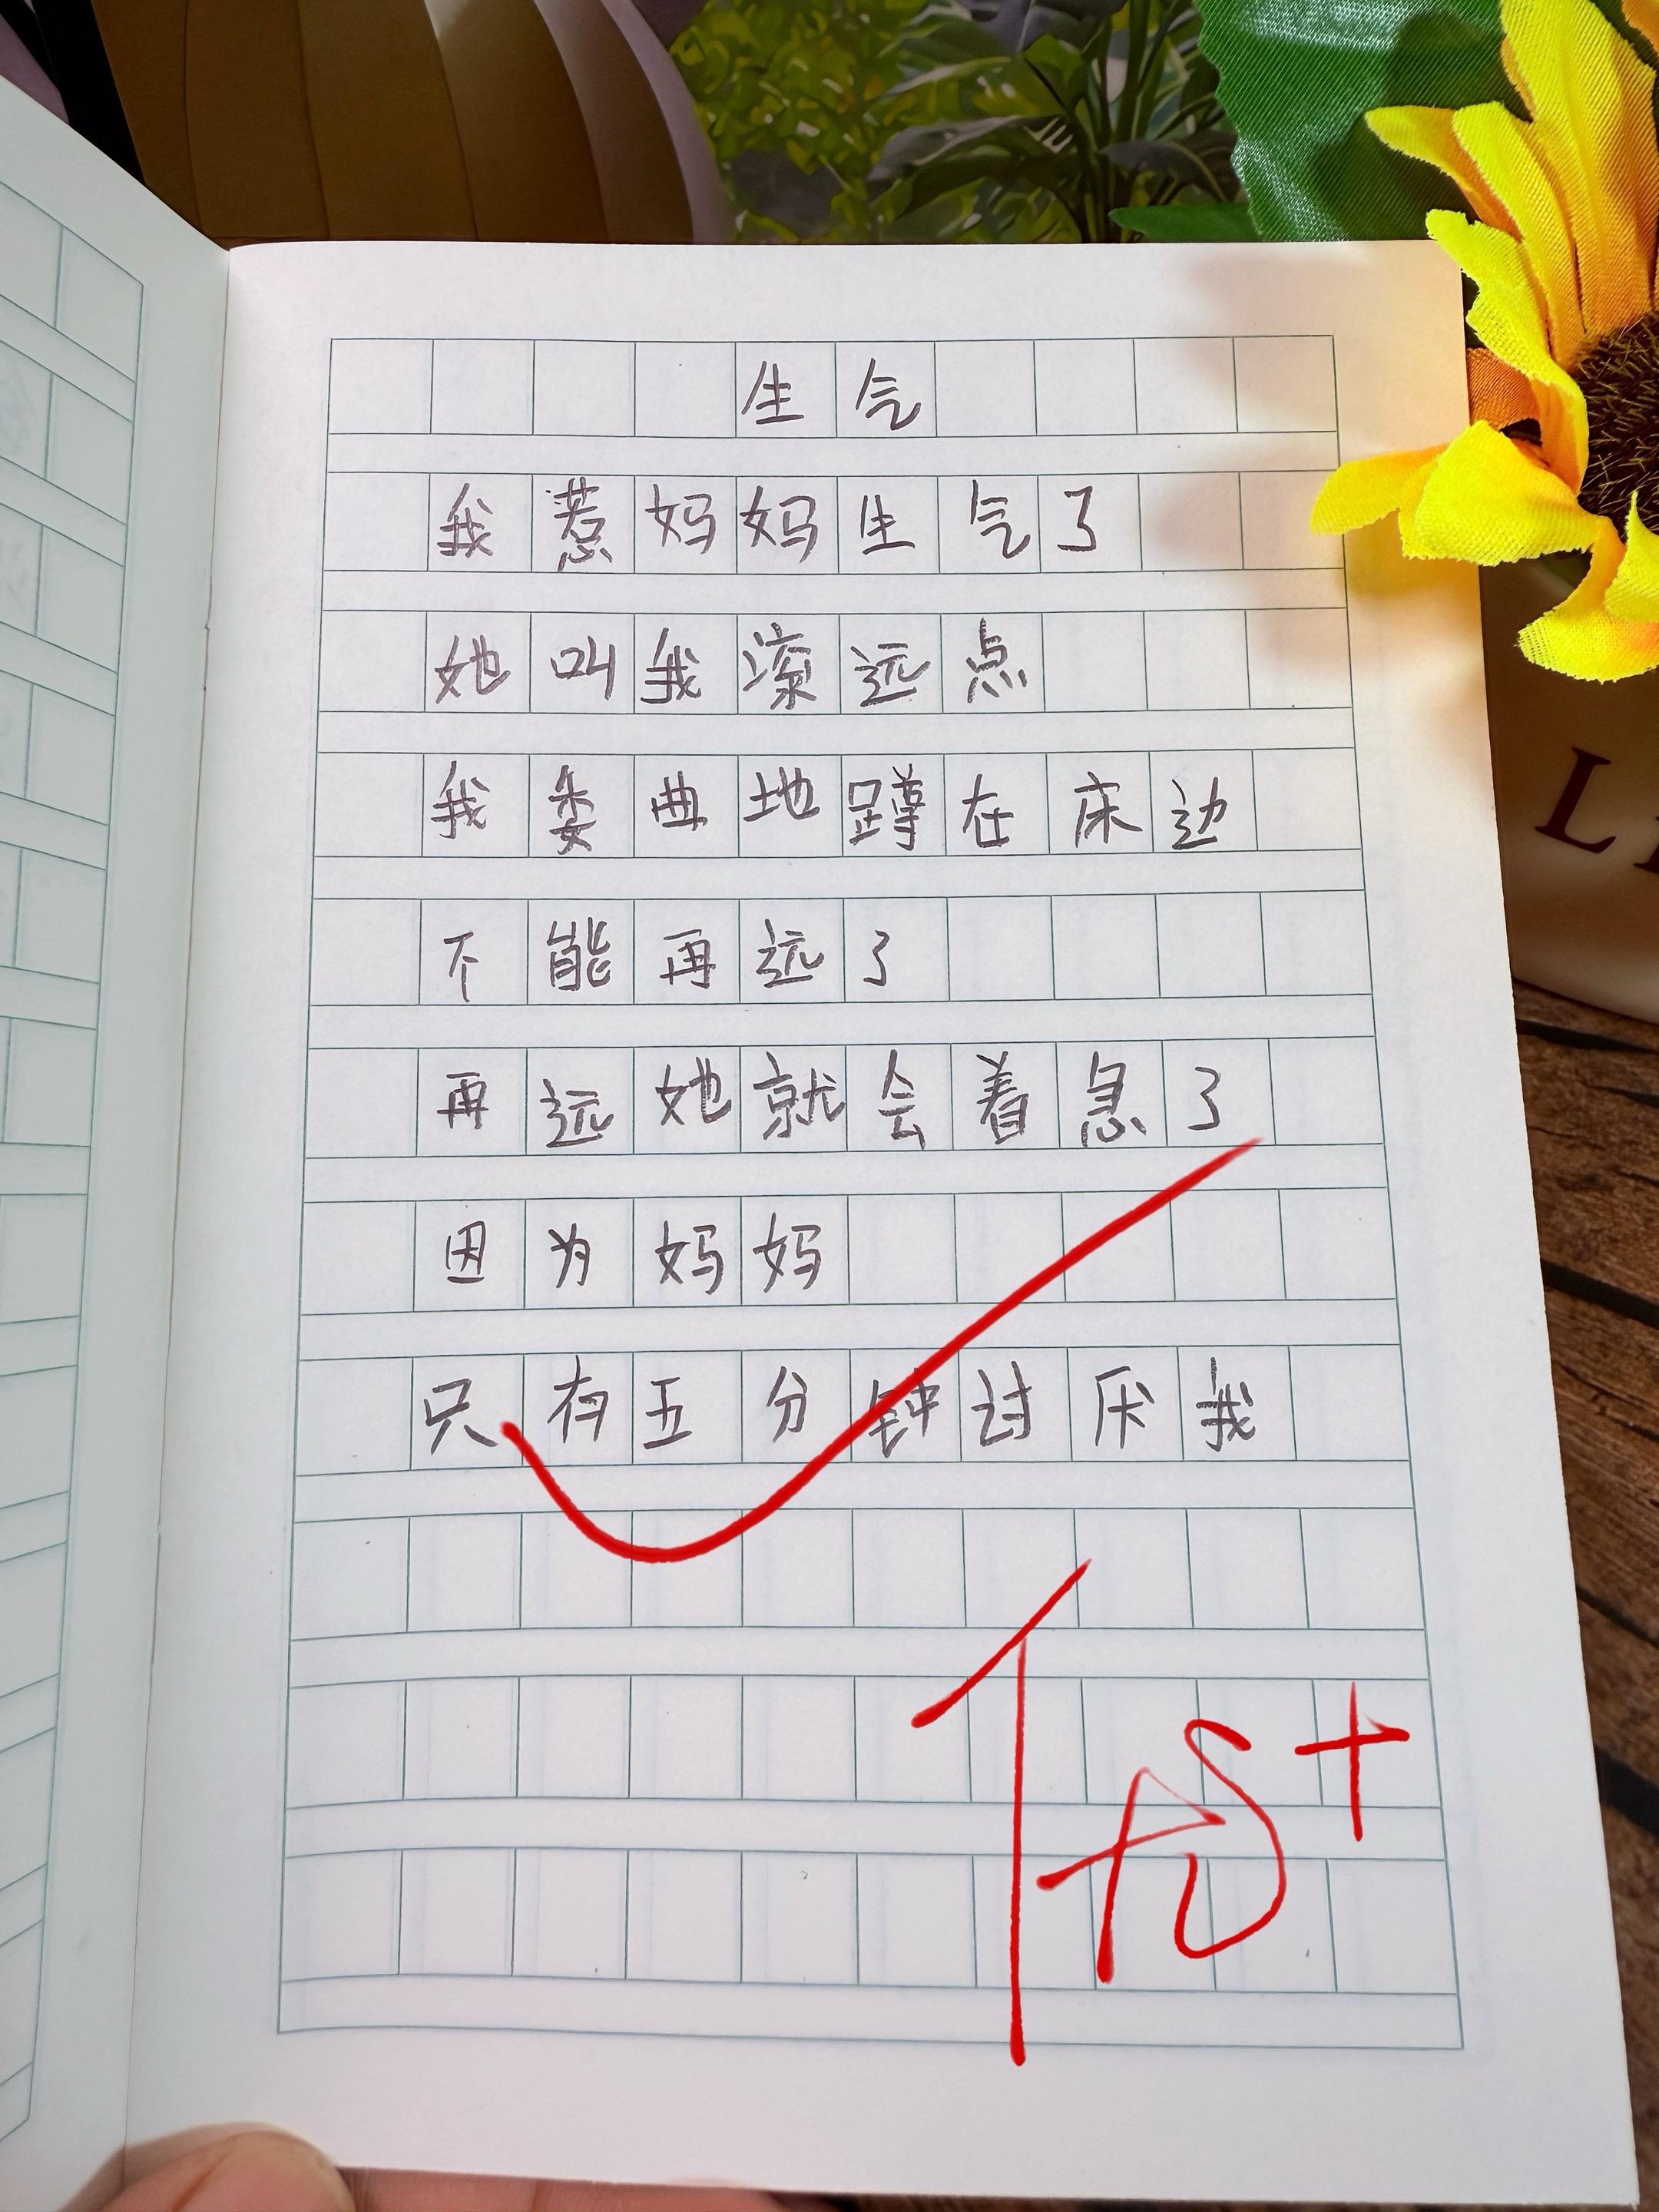 生气
我惹妈妈生气了
她叫我滚远点
我委曲地蹲在床边
不能再远了
再远她就会着急了
因为妈妈
只有五分钟讨厌我
优+